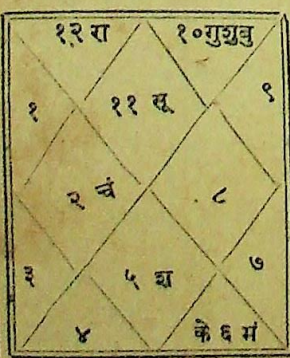 १२ रा १० गुशुबु
१ ११ सू ९
२ चं ८
३ ५ श ७
४ के ६ मं